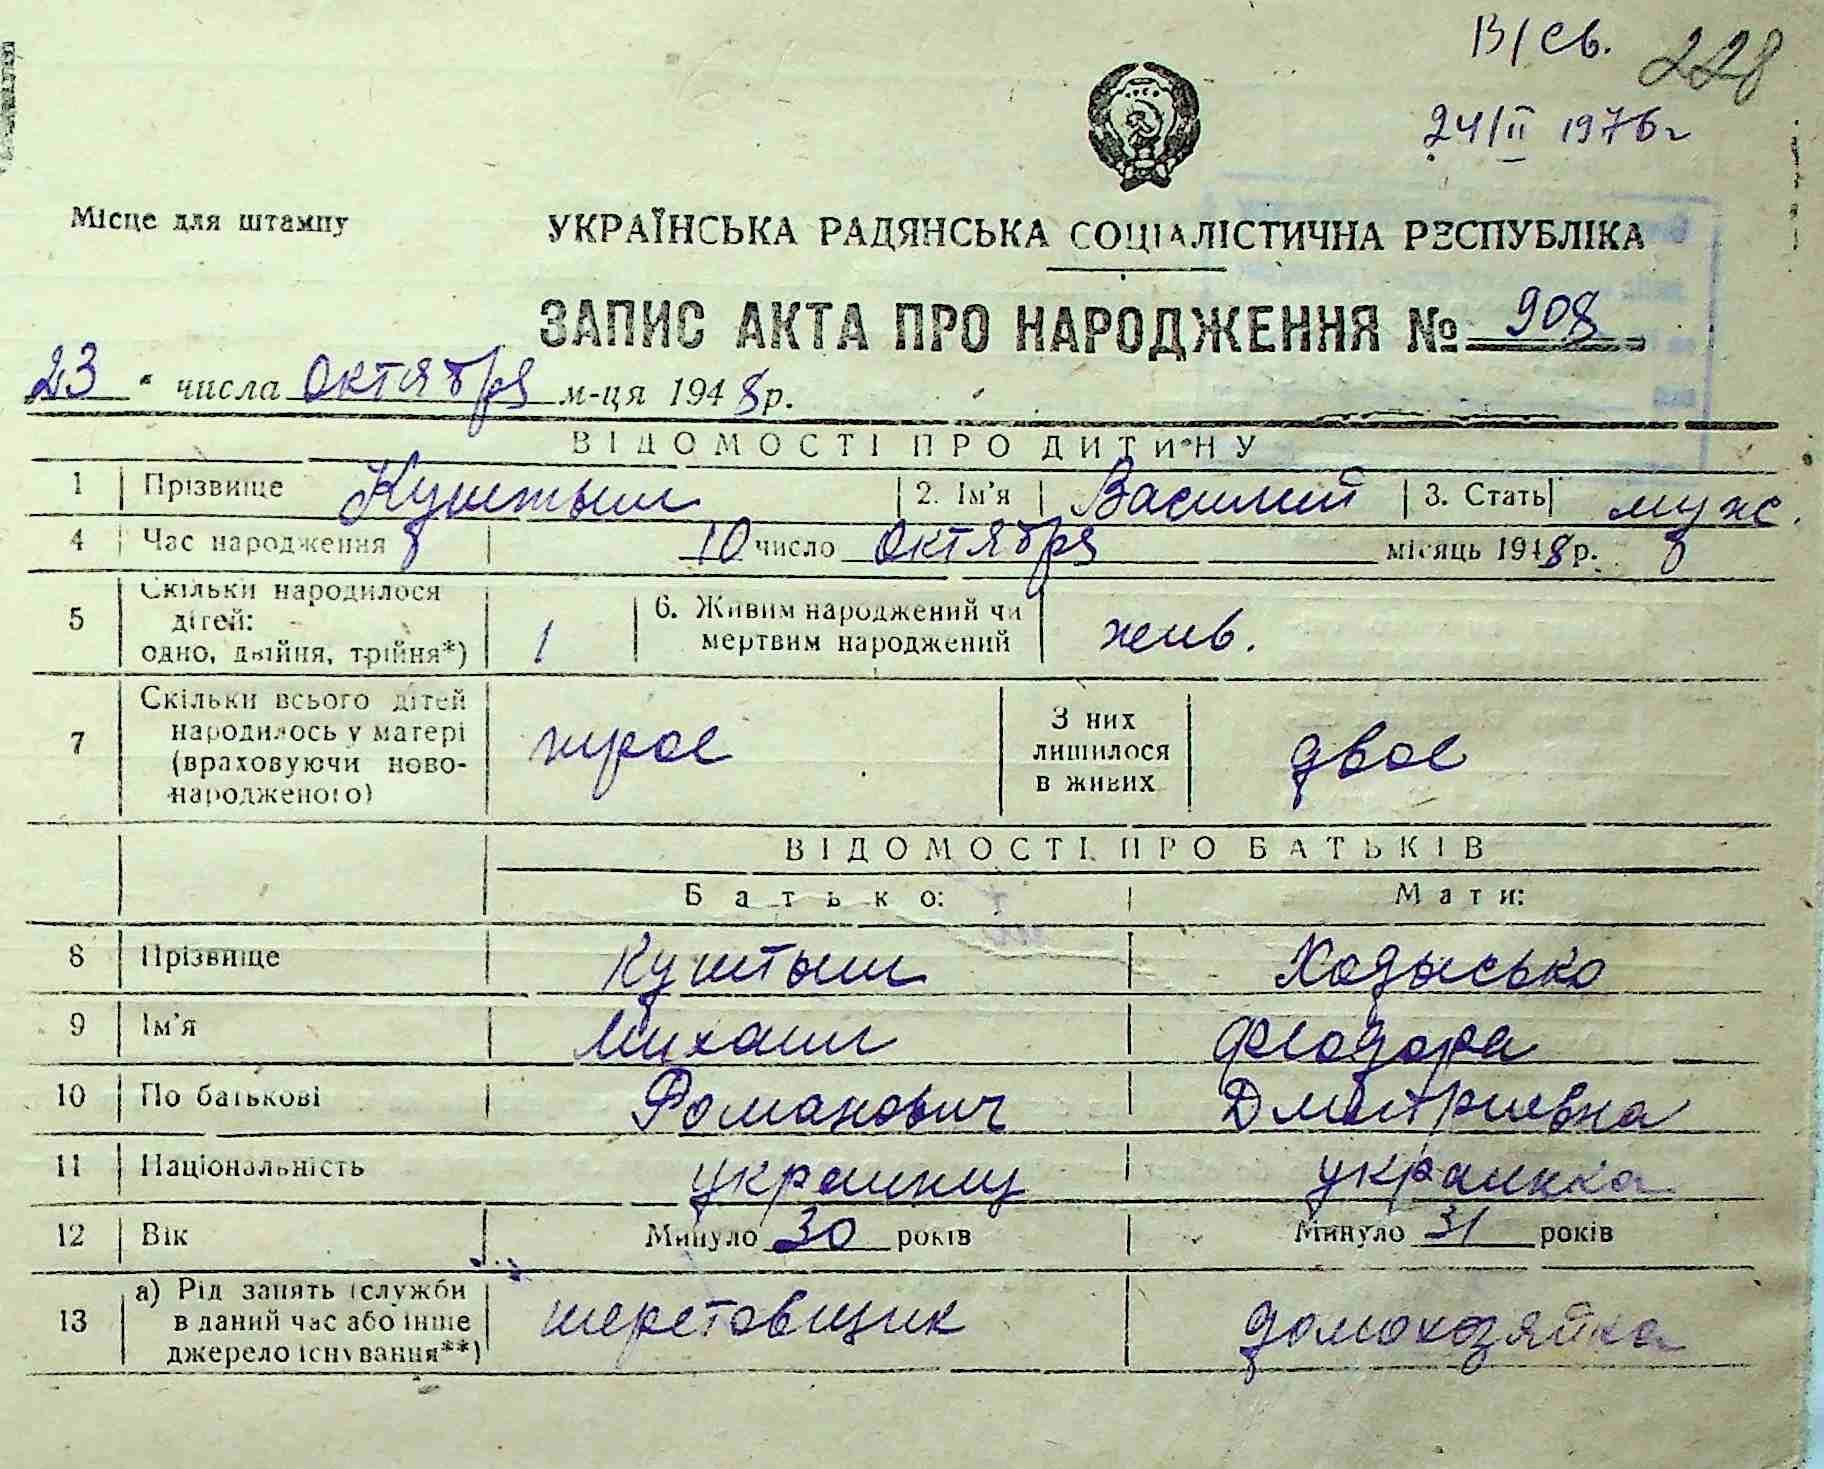 В/св. 228
24/II 1976г
Місце для штампу
УКРАЇНСЬКА РАДЯНСЬКА СОЦІАЛІСТИЧНА РЕСПУБЛІКА
ЗАПИС АКТА ПРО НАРОДЖЕННЯ № 908
23 " числа октября м-ця 1948 р.
ВІДОМОСТІ ПРО ДИТИНУ
1 Прізвище Куштын 2. Ім'я Василий 3. Стать муж.
4 Час народження 10 число октября місяць 1948 р.
5 Скільки народилося дітей: одно, двійня, трійня*) 1 6. Живим народжений чи мертвим народжений жив.
7 Скільки всього дітей народилось у матері (враховуючи новонародженого) трое З них лишилося в живих двое
ВІДОМОСТІ ПРО БАТЬКІВ
Батько: Мати:
8 Прізвище Куштын Ходысько
9 Ім'я Михаил Феодора
10 По батькові Романович Дмитриевна
11 Національність украинец украинка
12 Вік Минуло 30 років Минуло 31 років
13 а) Рід занять (служби в даний час або інше джерело існування**) шерстовщик домохозяйка